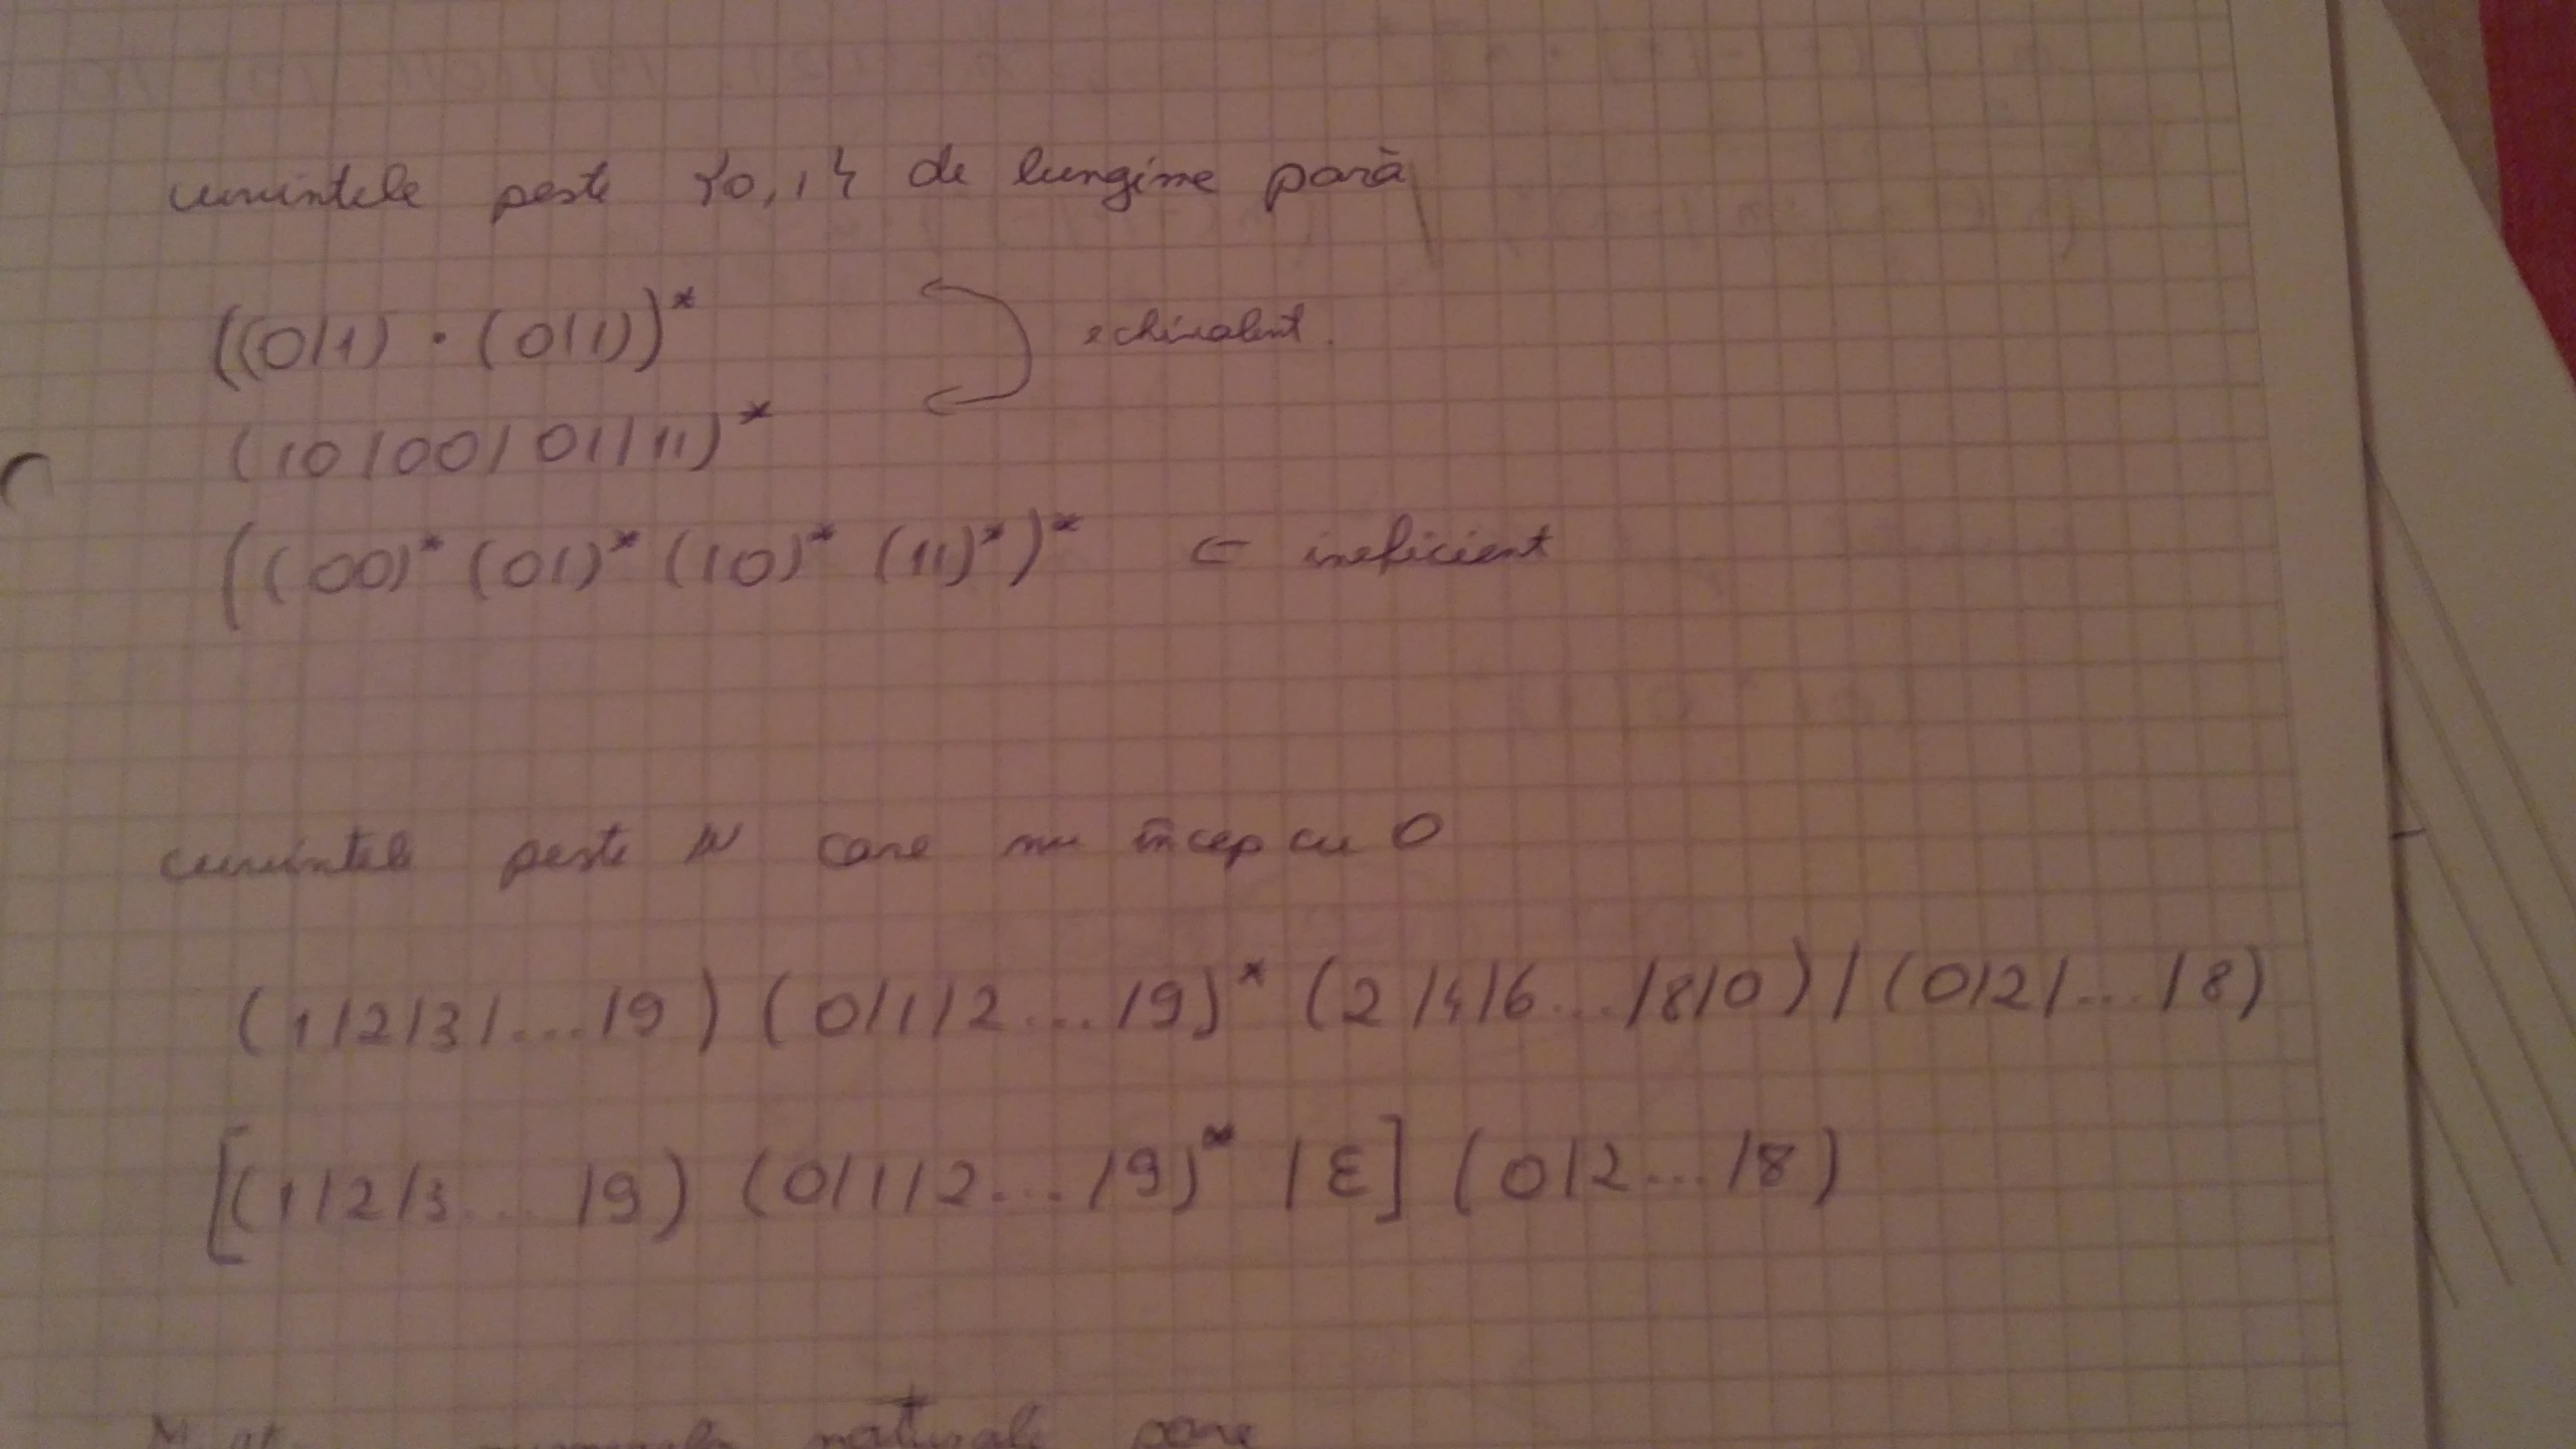 cuvintele peste {0,1} de lungime pară
((0|1) · (0|1))*
echivalent.
(10|00|01|11)*
((00)* (01)* (10)* (11)*)* ← ineficient
cuvintele peste N care nu încep cu 0
(1|2|3|...|9) (0|1|2...|9)* (2|4|6...|8|0) | (0|2|...|8)
[(1|2|3...|9) (0|1|2...|9)* | ε] (0|2...|8)
naturale pare